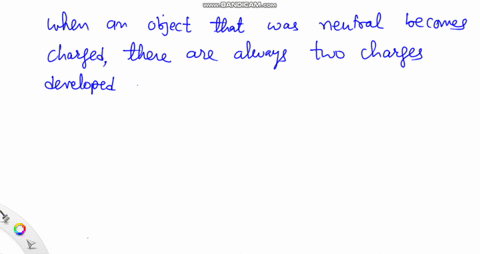 www.BANDICAM.com
when an object that was neutral becomes
charged, there are always two charges
developed